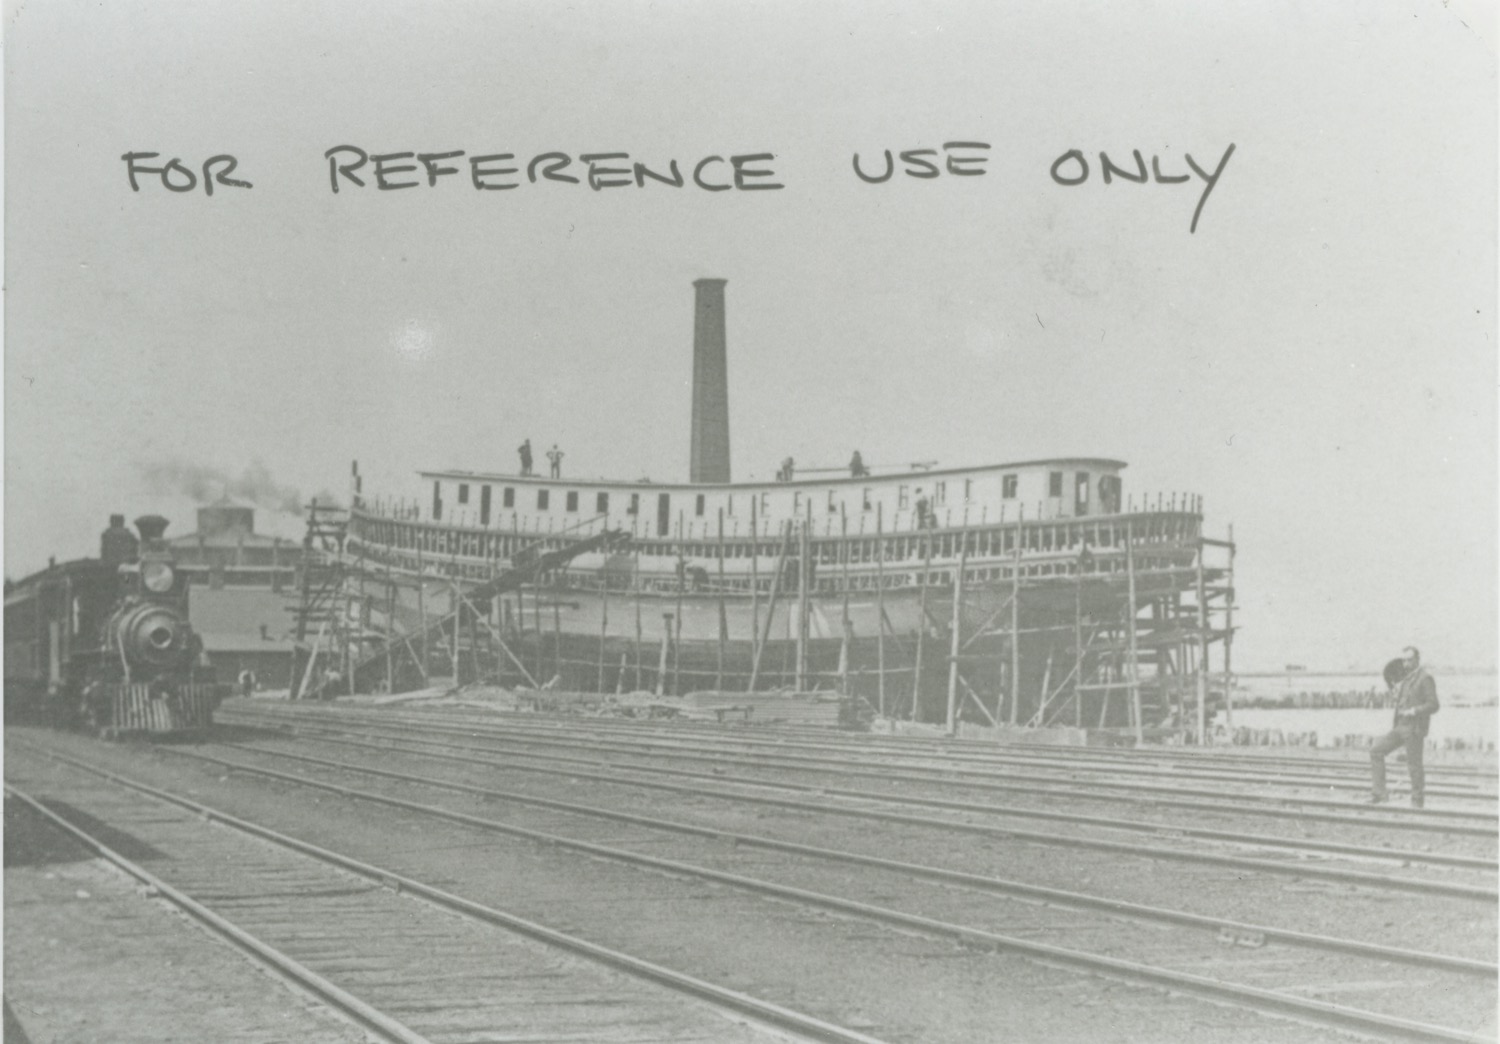 FOR REFERENCE USE ONLY